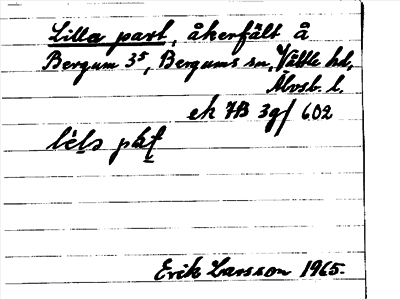 Lilla part, åkerfält å
Bergum 3⁵, Bergums sn, Vättle hd,
Älvsb. l.
ek 7B 3gf 602
Erik Larsson 1965.